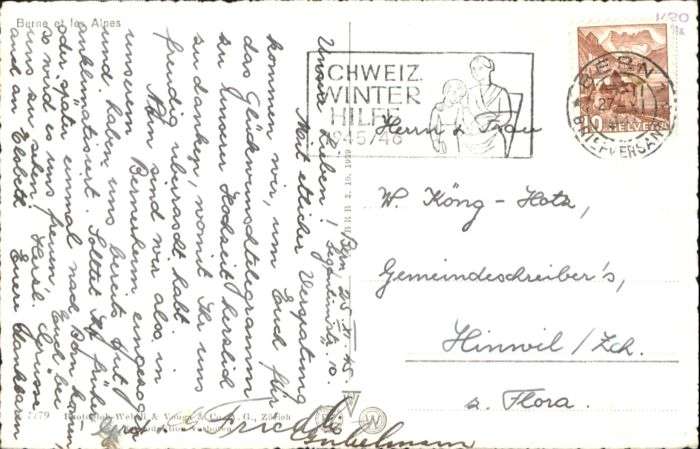 Berne et les Alpes
Bern, 25. XI. 45.
Unsere Lieben!
Mit etlicher Verspätung
kommen wir, um Euch für
das Glückwunschtelegramm
zu unserer Hochzeit herzlich
zu danken, womit Ihr uns
freudig überrascht habt.
Nun sind wir also in
unserem Bernerheim eingezogen
und haben uns bereits gut
akklimatisiert. Solltet Ihr früher
oder später einmal nach Bern kommen,
so wird es uns freuen, Euch bei
uns zu sehen. Herzl. Grüsse
auch an Elsbeth Eure dankbaren
Gerold &
Gubelmann
SCHWEIZ.
WINTER
HILFE
1945/46
BERN
BRIEFVERSAND
10 HELVETIA
Herrn & Frau
W. Köng - Hotz,
Gemeindeschreiber's,
Hinwil / Zch.
z. Flora.
7779 Photoglob-Wehrli & Vouga & Co. A. G., Zürich